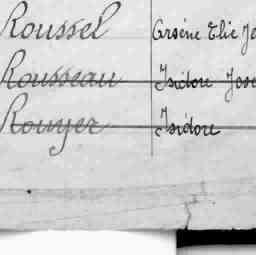 Roussel Arsène Elie Je
Rousseau Isidore Jose
Rouyer Isidore